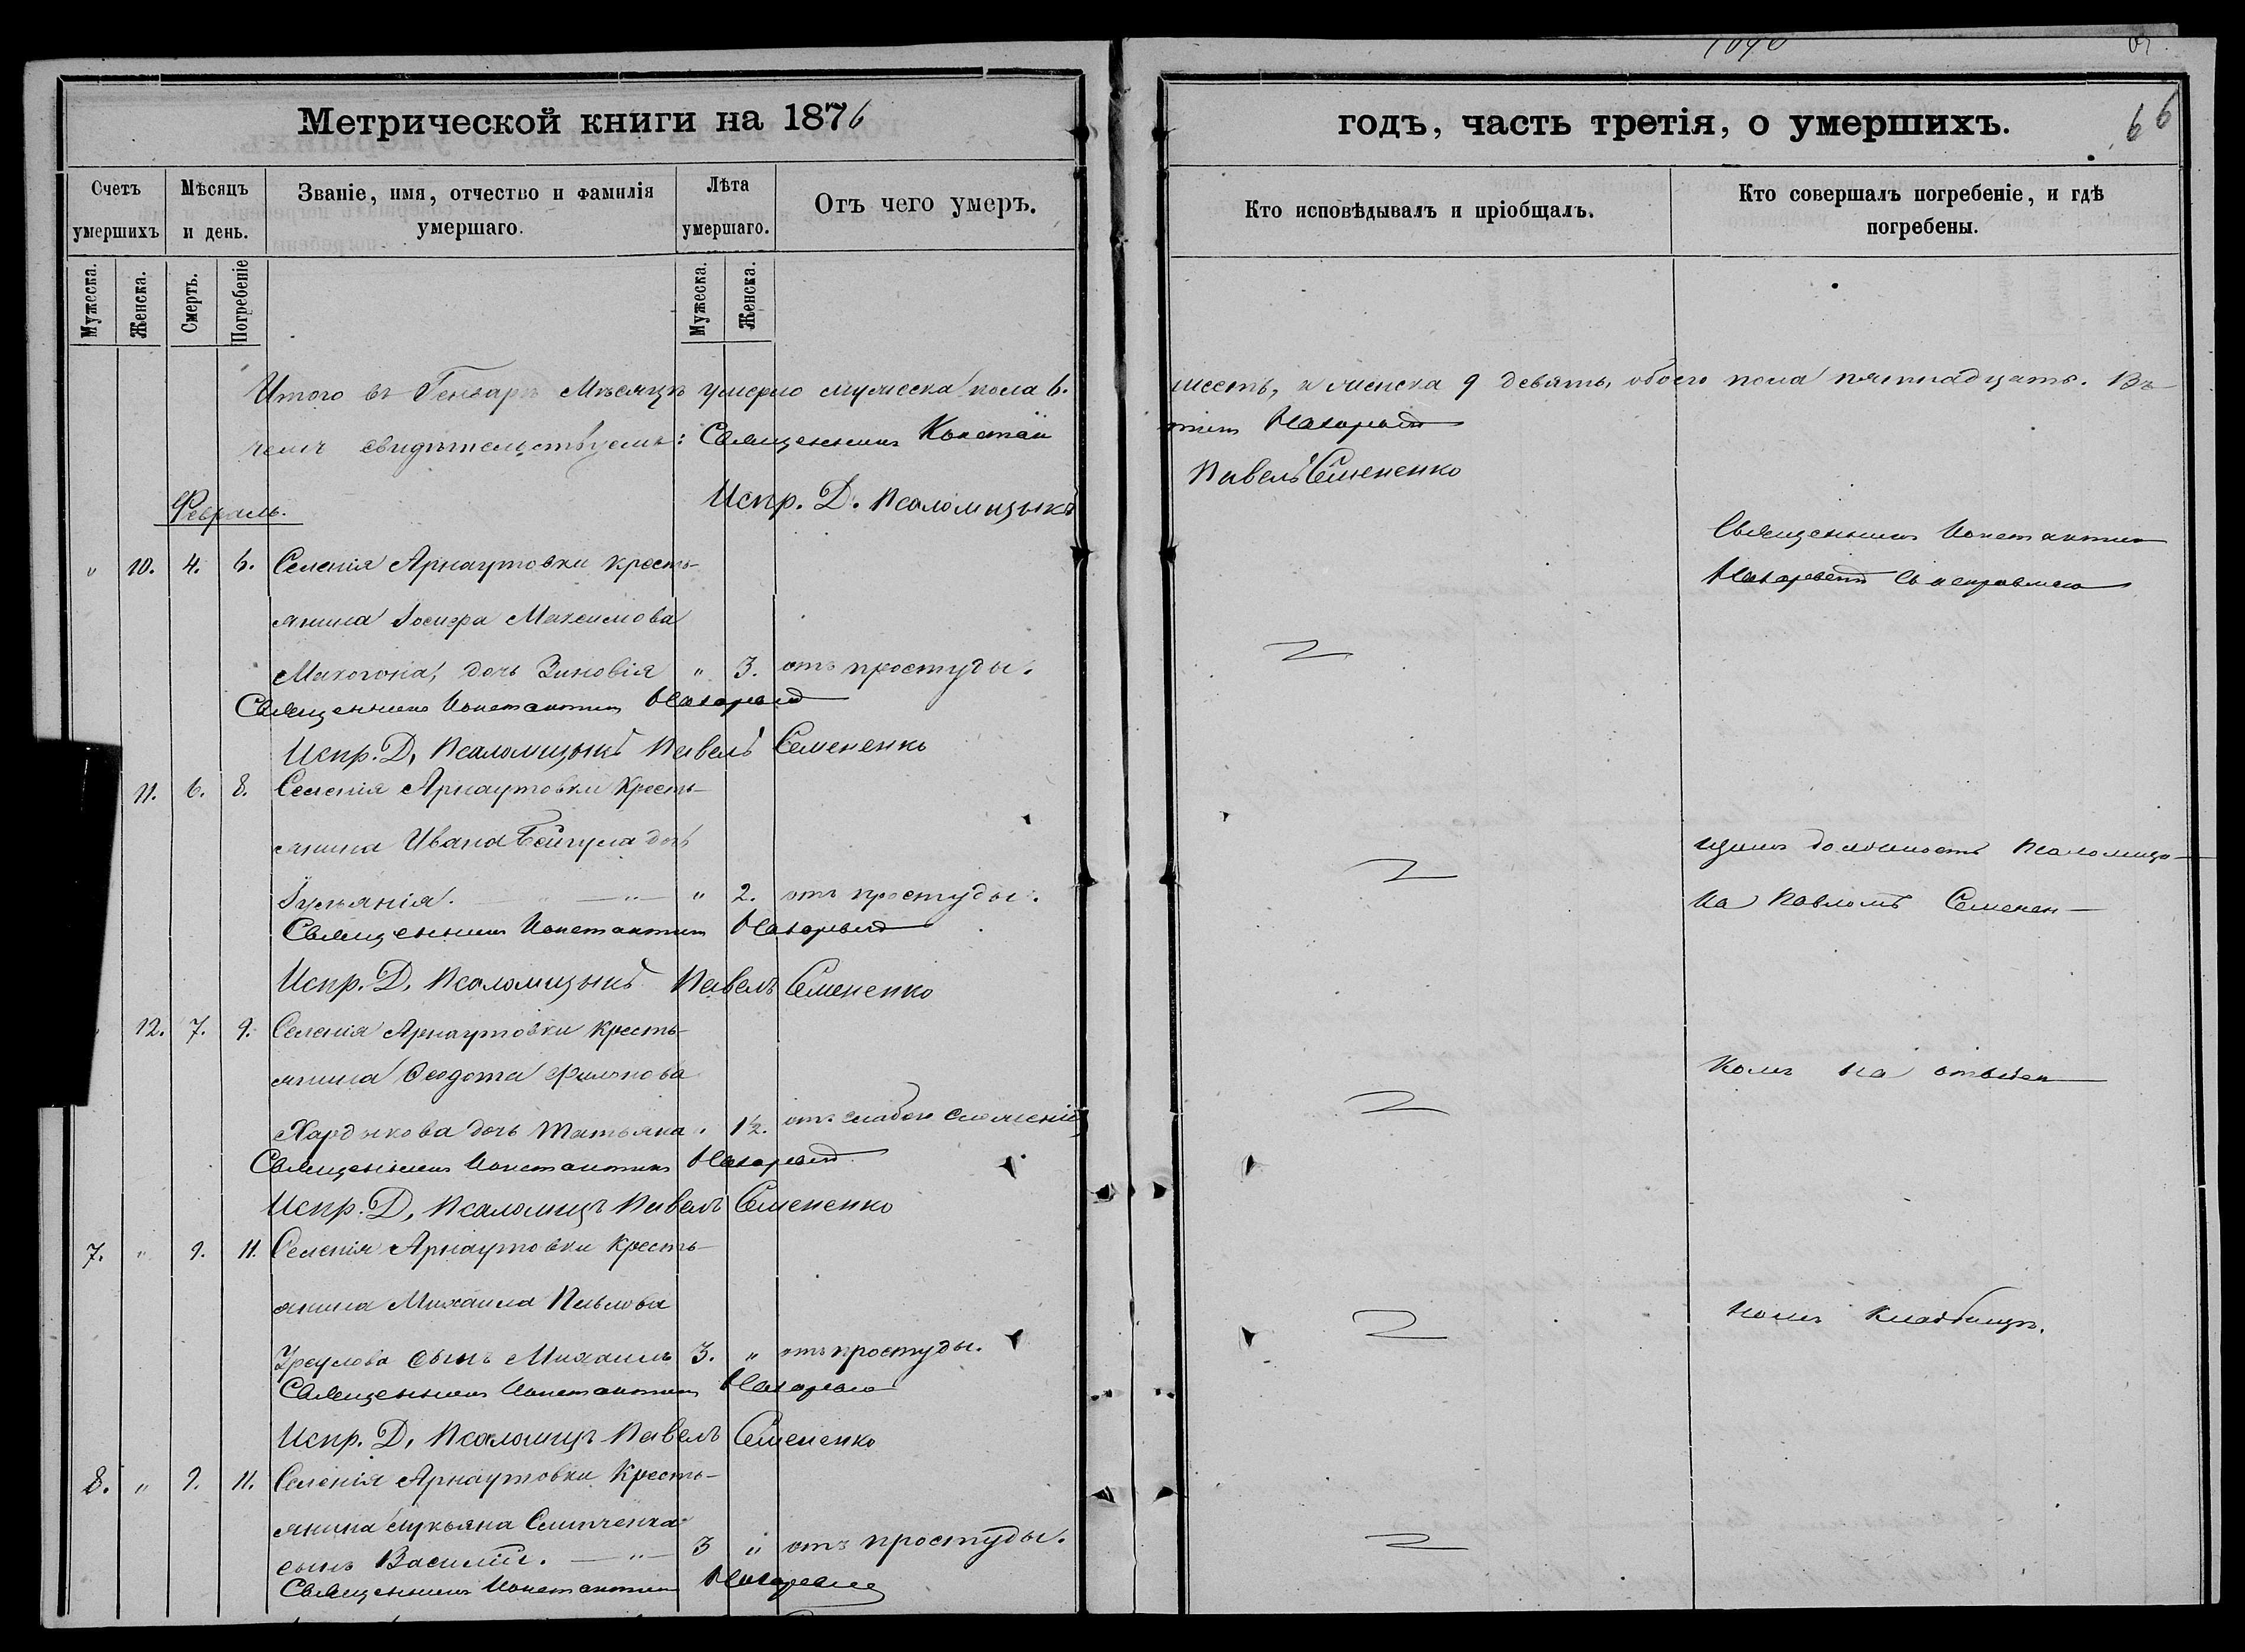 Метрической книги на 1876
годъ, часть третія, о умершихъ.
66
Счетъ умершихъ
Мѣсяцъ и день.
Званіе, имя, отчество и фамилія умершаго.
Лѣта умершаго.
Отъ чего умеръ.
Кто исповѣдывалъ и пріобщалъ.
Кто совершалъ погребеніе, и гдѣ погребены.
Мужеска.
Женска.
Смерть.
Погребеніе
Мужеска.
Женска.
Итого въ Генварѣ Мѣсяцѣ умерло мужеска пола 6.
шесть, и женска 9 девять, обоего пола пятнадцать. Въ
чемъ свидѣтельствуемъ: Священникъ Констан
тинъ
Испр. Д. Псаломщыкъ
Павелъ Семененко
Февраль.
" 10. 4. 6. Селенія Арнаутовки кресть-
янина Іосифа Максимова
Макогона, дочь Зиновія " 3. отъ простуды.
Священникъ Константинъ
Испр. Д. Псаломщыкъ Павелъ Семененко
11. 6. 8. Селенія Арнаутовки Кресть-
янина Ивана Бейгула дочь
Іуліанія. " 2. отъ простуды.
Священникъ Константинъ
Испр. Д. Псаломщыкъ Павелъ Семененко
12. 7. 9. Селенія Арнаутовки Кресть-
янина Ѳеодота
дочь Татьяна. 1½. отъ слабаго сложенія
Священникъ Константинъ
Испр. Д. Псаломщ Павелъ Семененко
7. " 9. 11. Селенія Арнаутовки Кресть-
янина Михаила Павлова
сынъ Михаилъ 3. " отъ простуды.
Священникъ Константинъ
Испр. Д. Псаломщ Павелъ Семененко
8. " 9. 11. Селенія Арнаутовки Кресть-
янина Лукьяна
сынъ Василій. 3 " отъ простуды.
Священникъ Константинъ
Священникъ Константинъ
съ исправляю
щимъ должность Псаломщи
ка Павломъ Семенен-
комъ на отведен
номъ кладбищѣ.